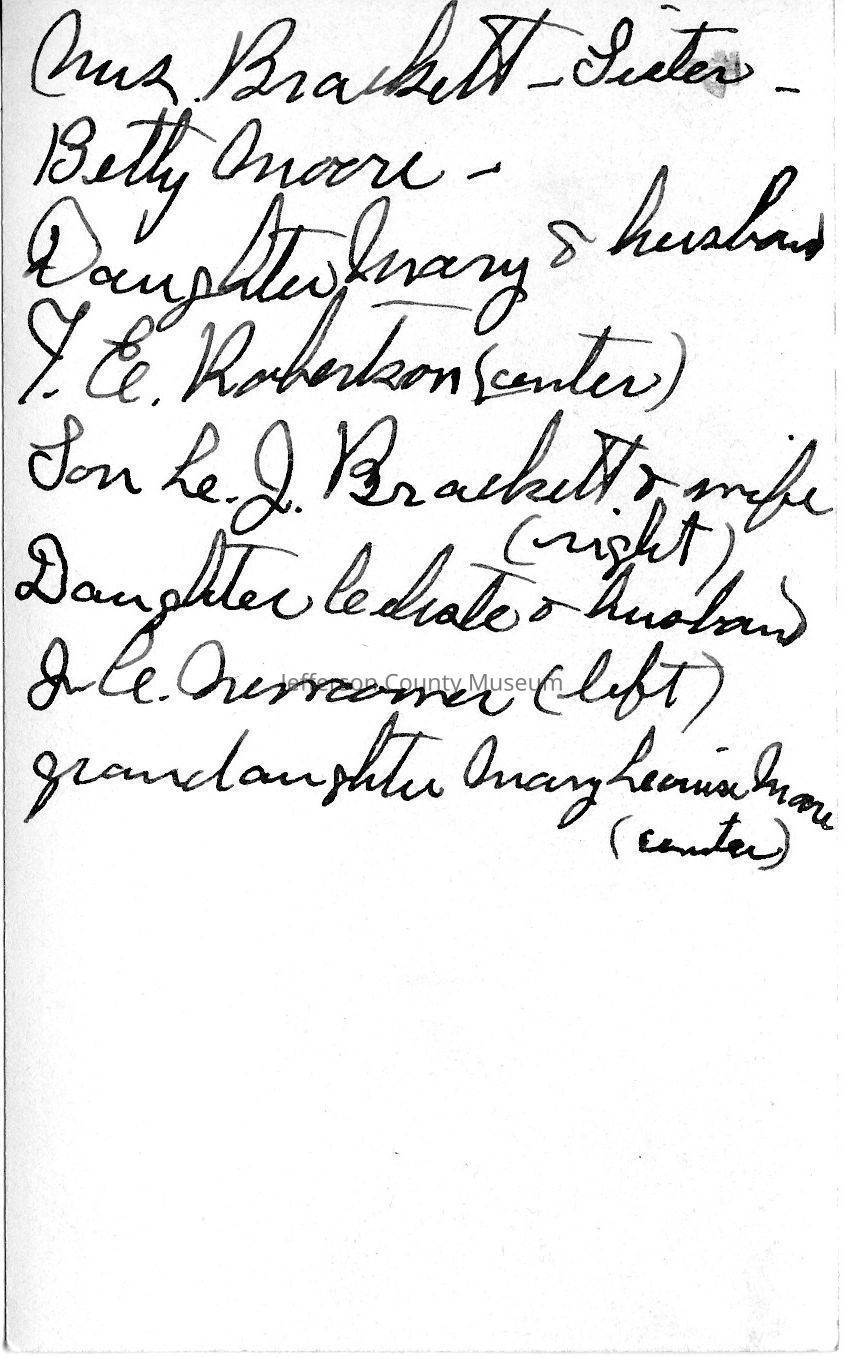 Mrs. Brackett - Sister -
Betty Moore -
Daughter Mary & husband
T. E. Robertson (center)
Son J. Brackett & wife
(right)
Daughter & husband
J. C. Newcomer (left)
Jefferson County Museum
grandaughter Mary Louise Moore
(center)